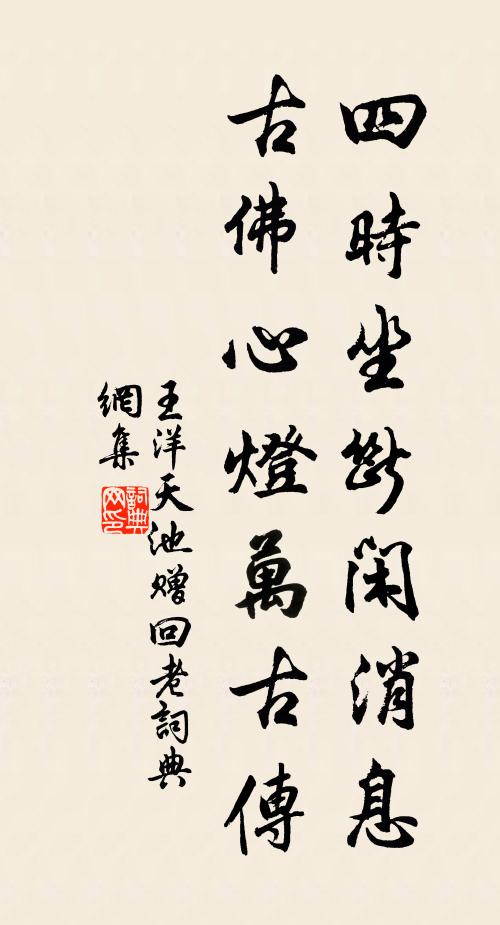 四時坐斷閑消息
古佛心燈萬古傳
王洋天池贈回老詞典
網集
詞典
网印